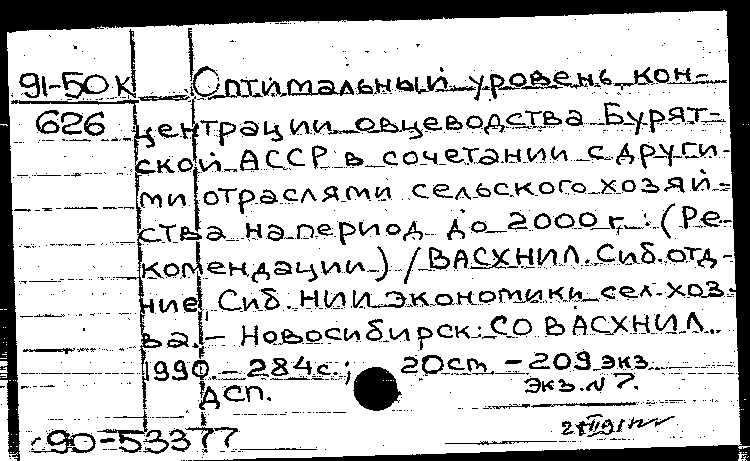 91-50К Оптимальный уровень кон-
626 центрации овцеводства Бурят-
ской АССР в сочетании с други-
ми отраслями сельского хозяй-
ства на период до 2000 г. : (Ре-
комендации) / ВАСХНИЛ. Сиб. отд-
ние, Сиб. НИИ экономики сел. хоз-
ва. – Новосибирск: СО ВАСХНИЛ.
1990. – 284 с.; 20 см. – 209 экз.
ДСП. Экз. N 7.
с90-53377